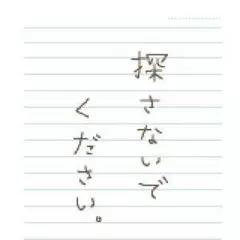 探さないで
ください。